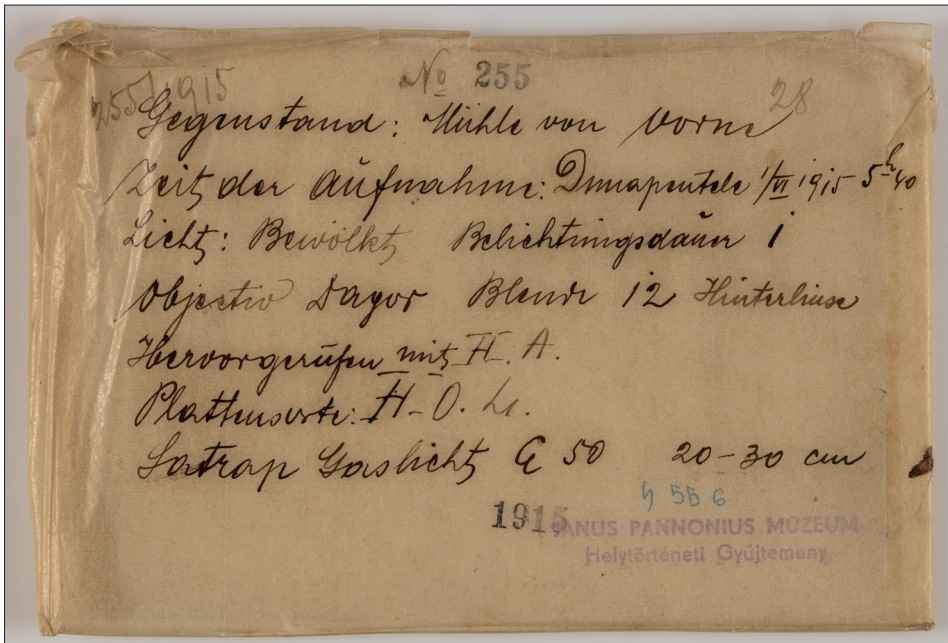 255/1915
No 255
28
Gegenstand: Mühle von vorne
Zeit der Aufnahme: Dunapentele 1/VI 1915 5h40
Licht: Bewölkt Belichtungsdauer 1
Objectiv Dagor Blende 12 Hinterlinse
Hervorgerufen mit H. A.
Plattensorte: H-O. Li.
Satrap Gaslicht G 50 20-30 cm
4 556
1915
JANUS PANNONIUS MÚZEUM
Helytörténeti Gyűjtemény